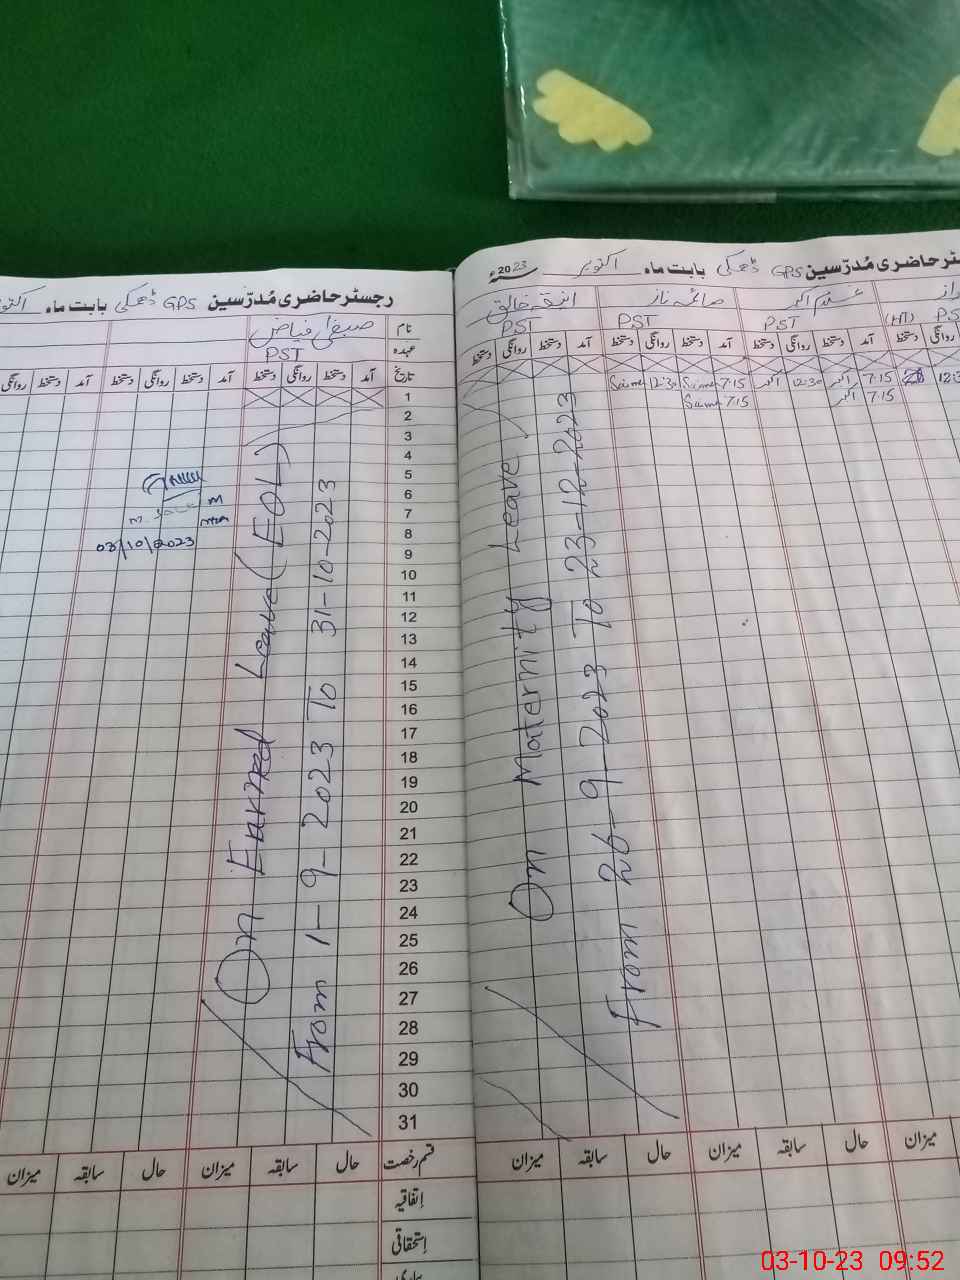 رجسٹر حاضری مُدرّسین GPS ڈھکی بابت ماہ اکتوبر 2023ء
صائمہ ناز
PST PST PST (HT)
دستخط روانگی دستخط آمد دستخط روانگی دستخط آمد دستخط روانگی دستخط آمد دستخط روانگی
12:30 7:15 اکبر 12:30 اکبر 7:15
7:15 اکبر 7:15
On Maternity Leave
From 26-9-2023 To 23-12-2023
میزان سابقہ حال میزان سابقہ حال میزان
رجسٹر حاضری مُدرّسین GPS ڈھکی بابت ماہ
نام
عہدہ PST
تاریخ آمد دستخط روانگی دستخط آمد دستخط روانگی دستخط آمد دستخط روانگی
1
2
3
4
5
6
7
8
9
10
11
12
13
14
15
16
17
18
19
20
21
22
23
24
25
26
27
28
29
30
31
On Earned Leave (EOL)
From 1-9-2023 To 31-10-2023
03/10/2023
قسم رخصت حال سابقہ میزان حال سابقہ میزان
اِتفاقیہ
اِستحقاقی
03-10-23 09:52